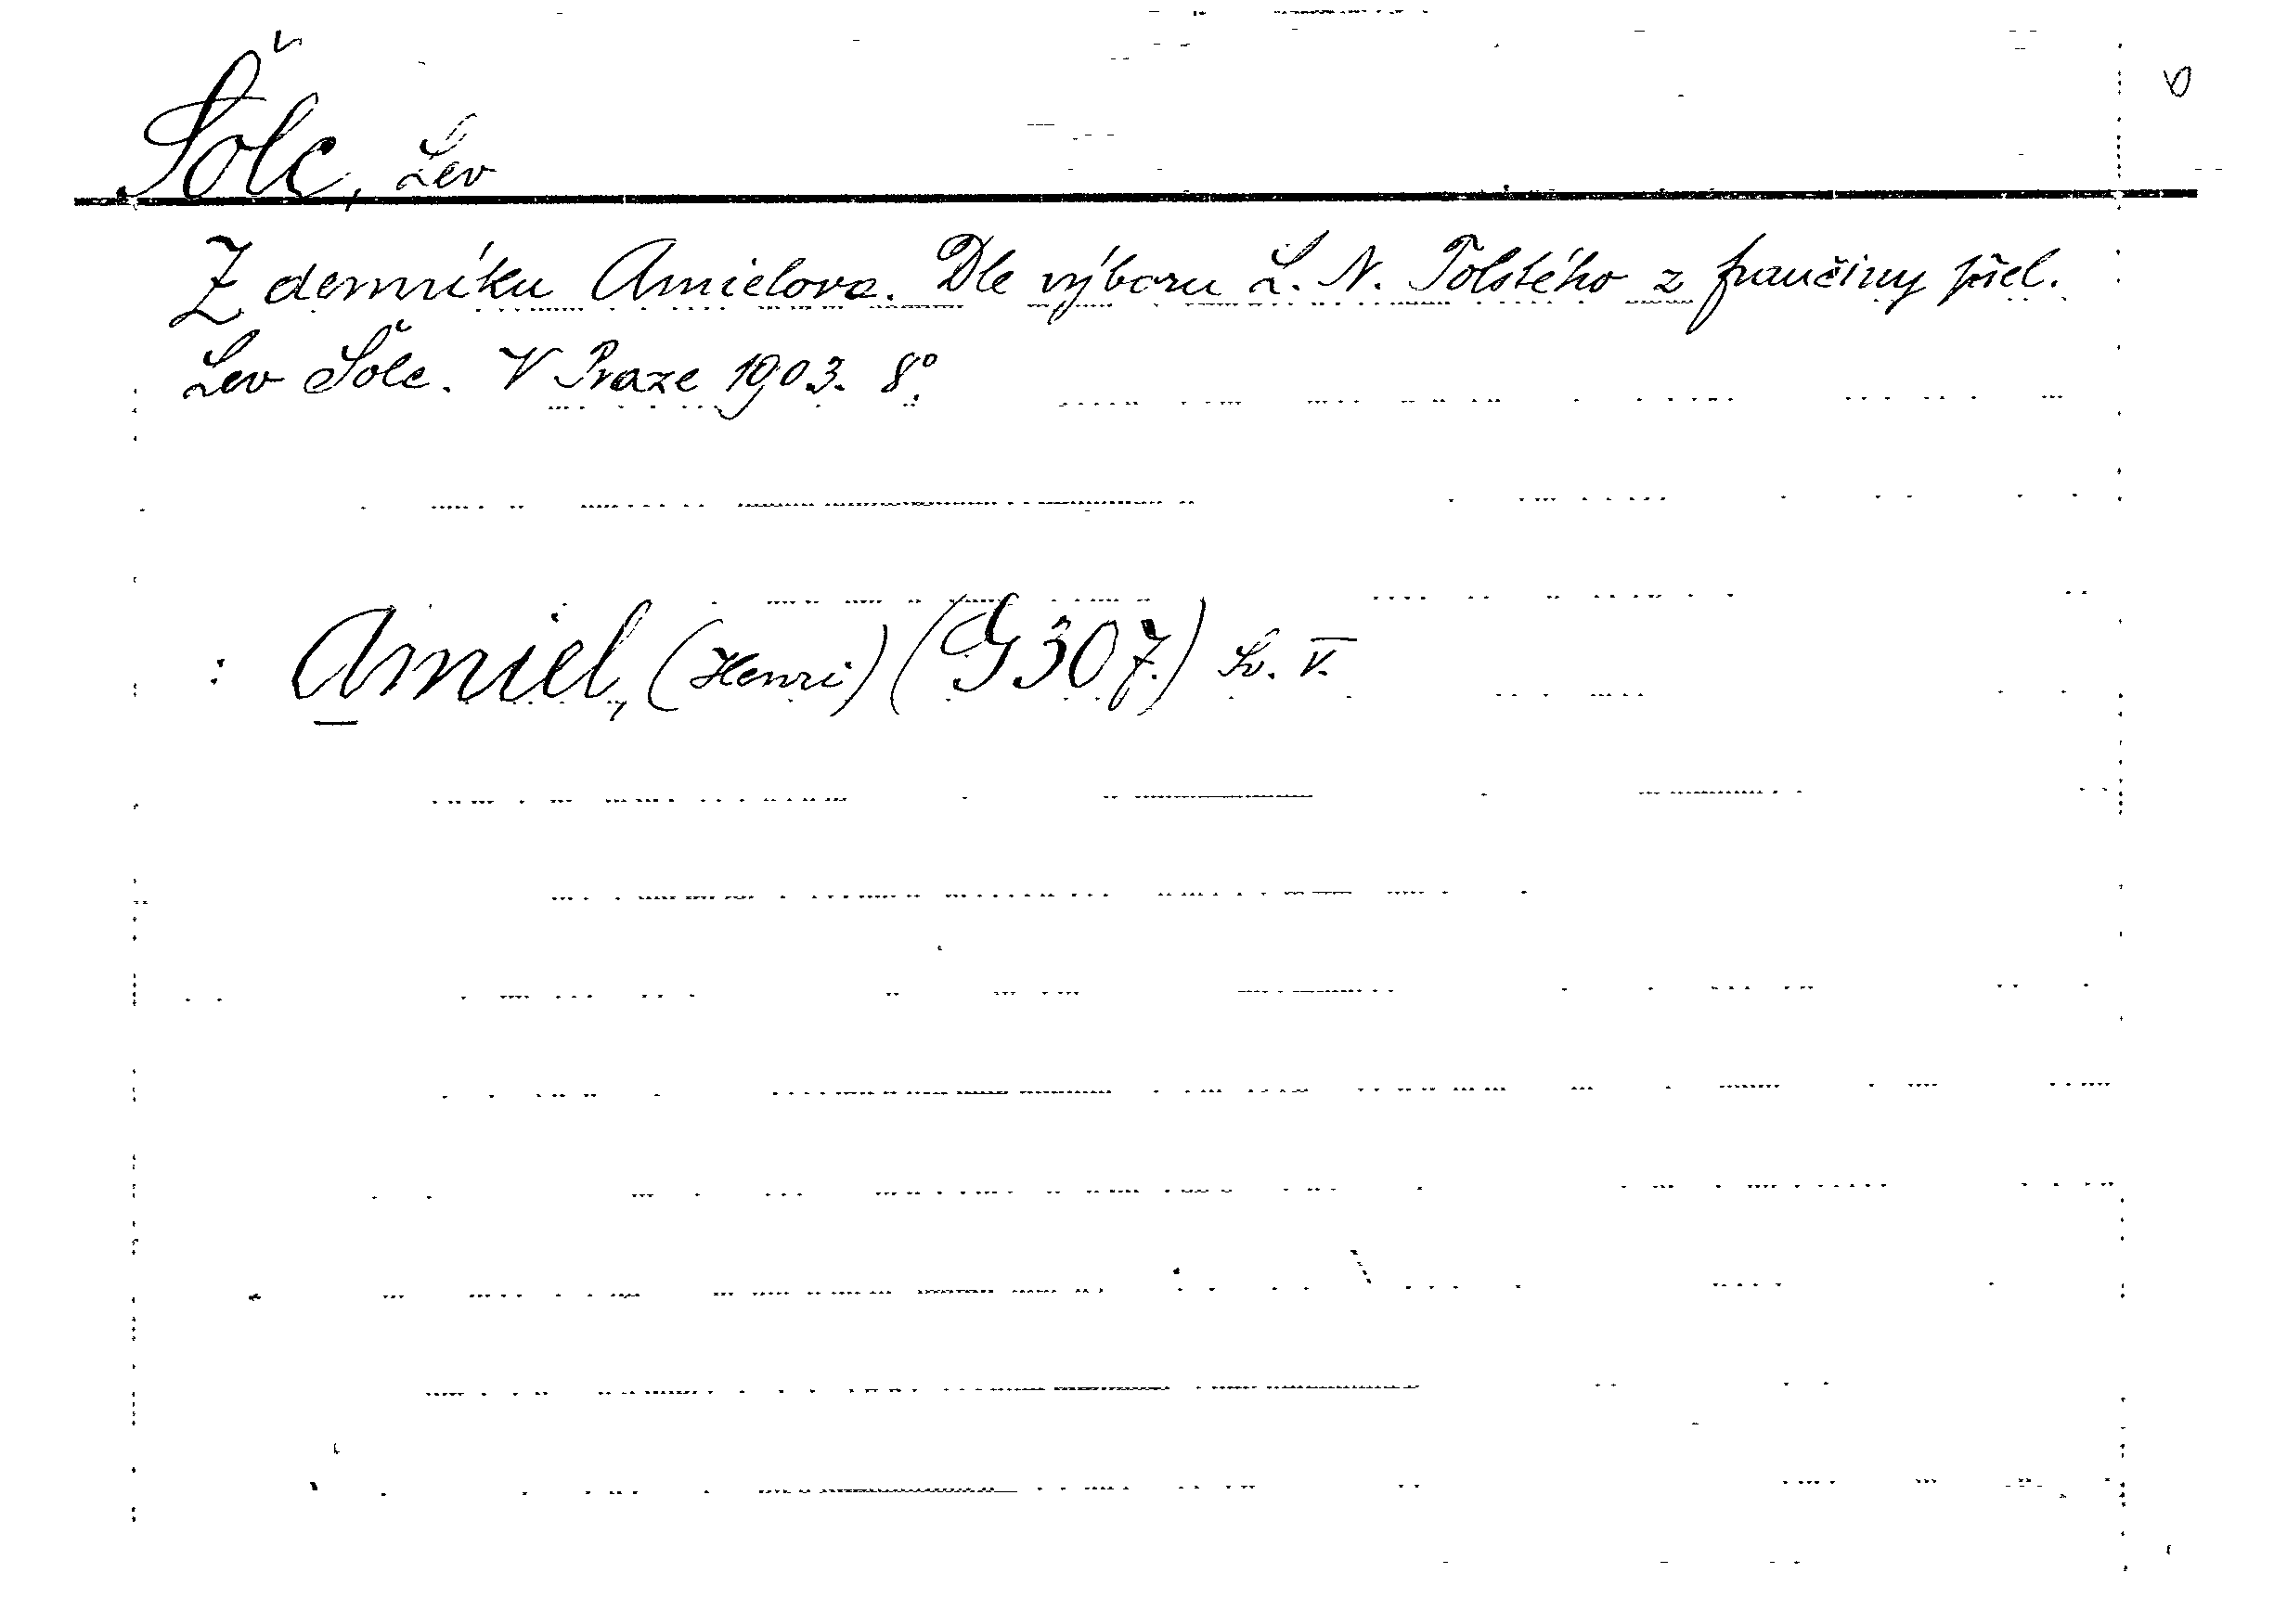 Šolc, Lev
Z denníku Amielova. Dle výboru L. N. Tolstého z frančiny přel.
Lev Šolc. V Praze 1903. 8°.
: Amiel, (Henri) (G 307.) Sv. V.